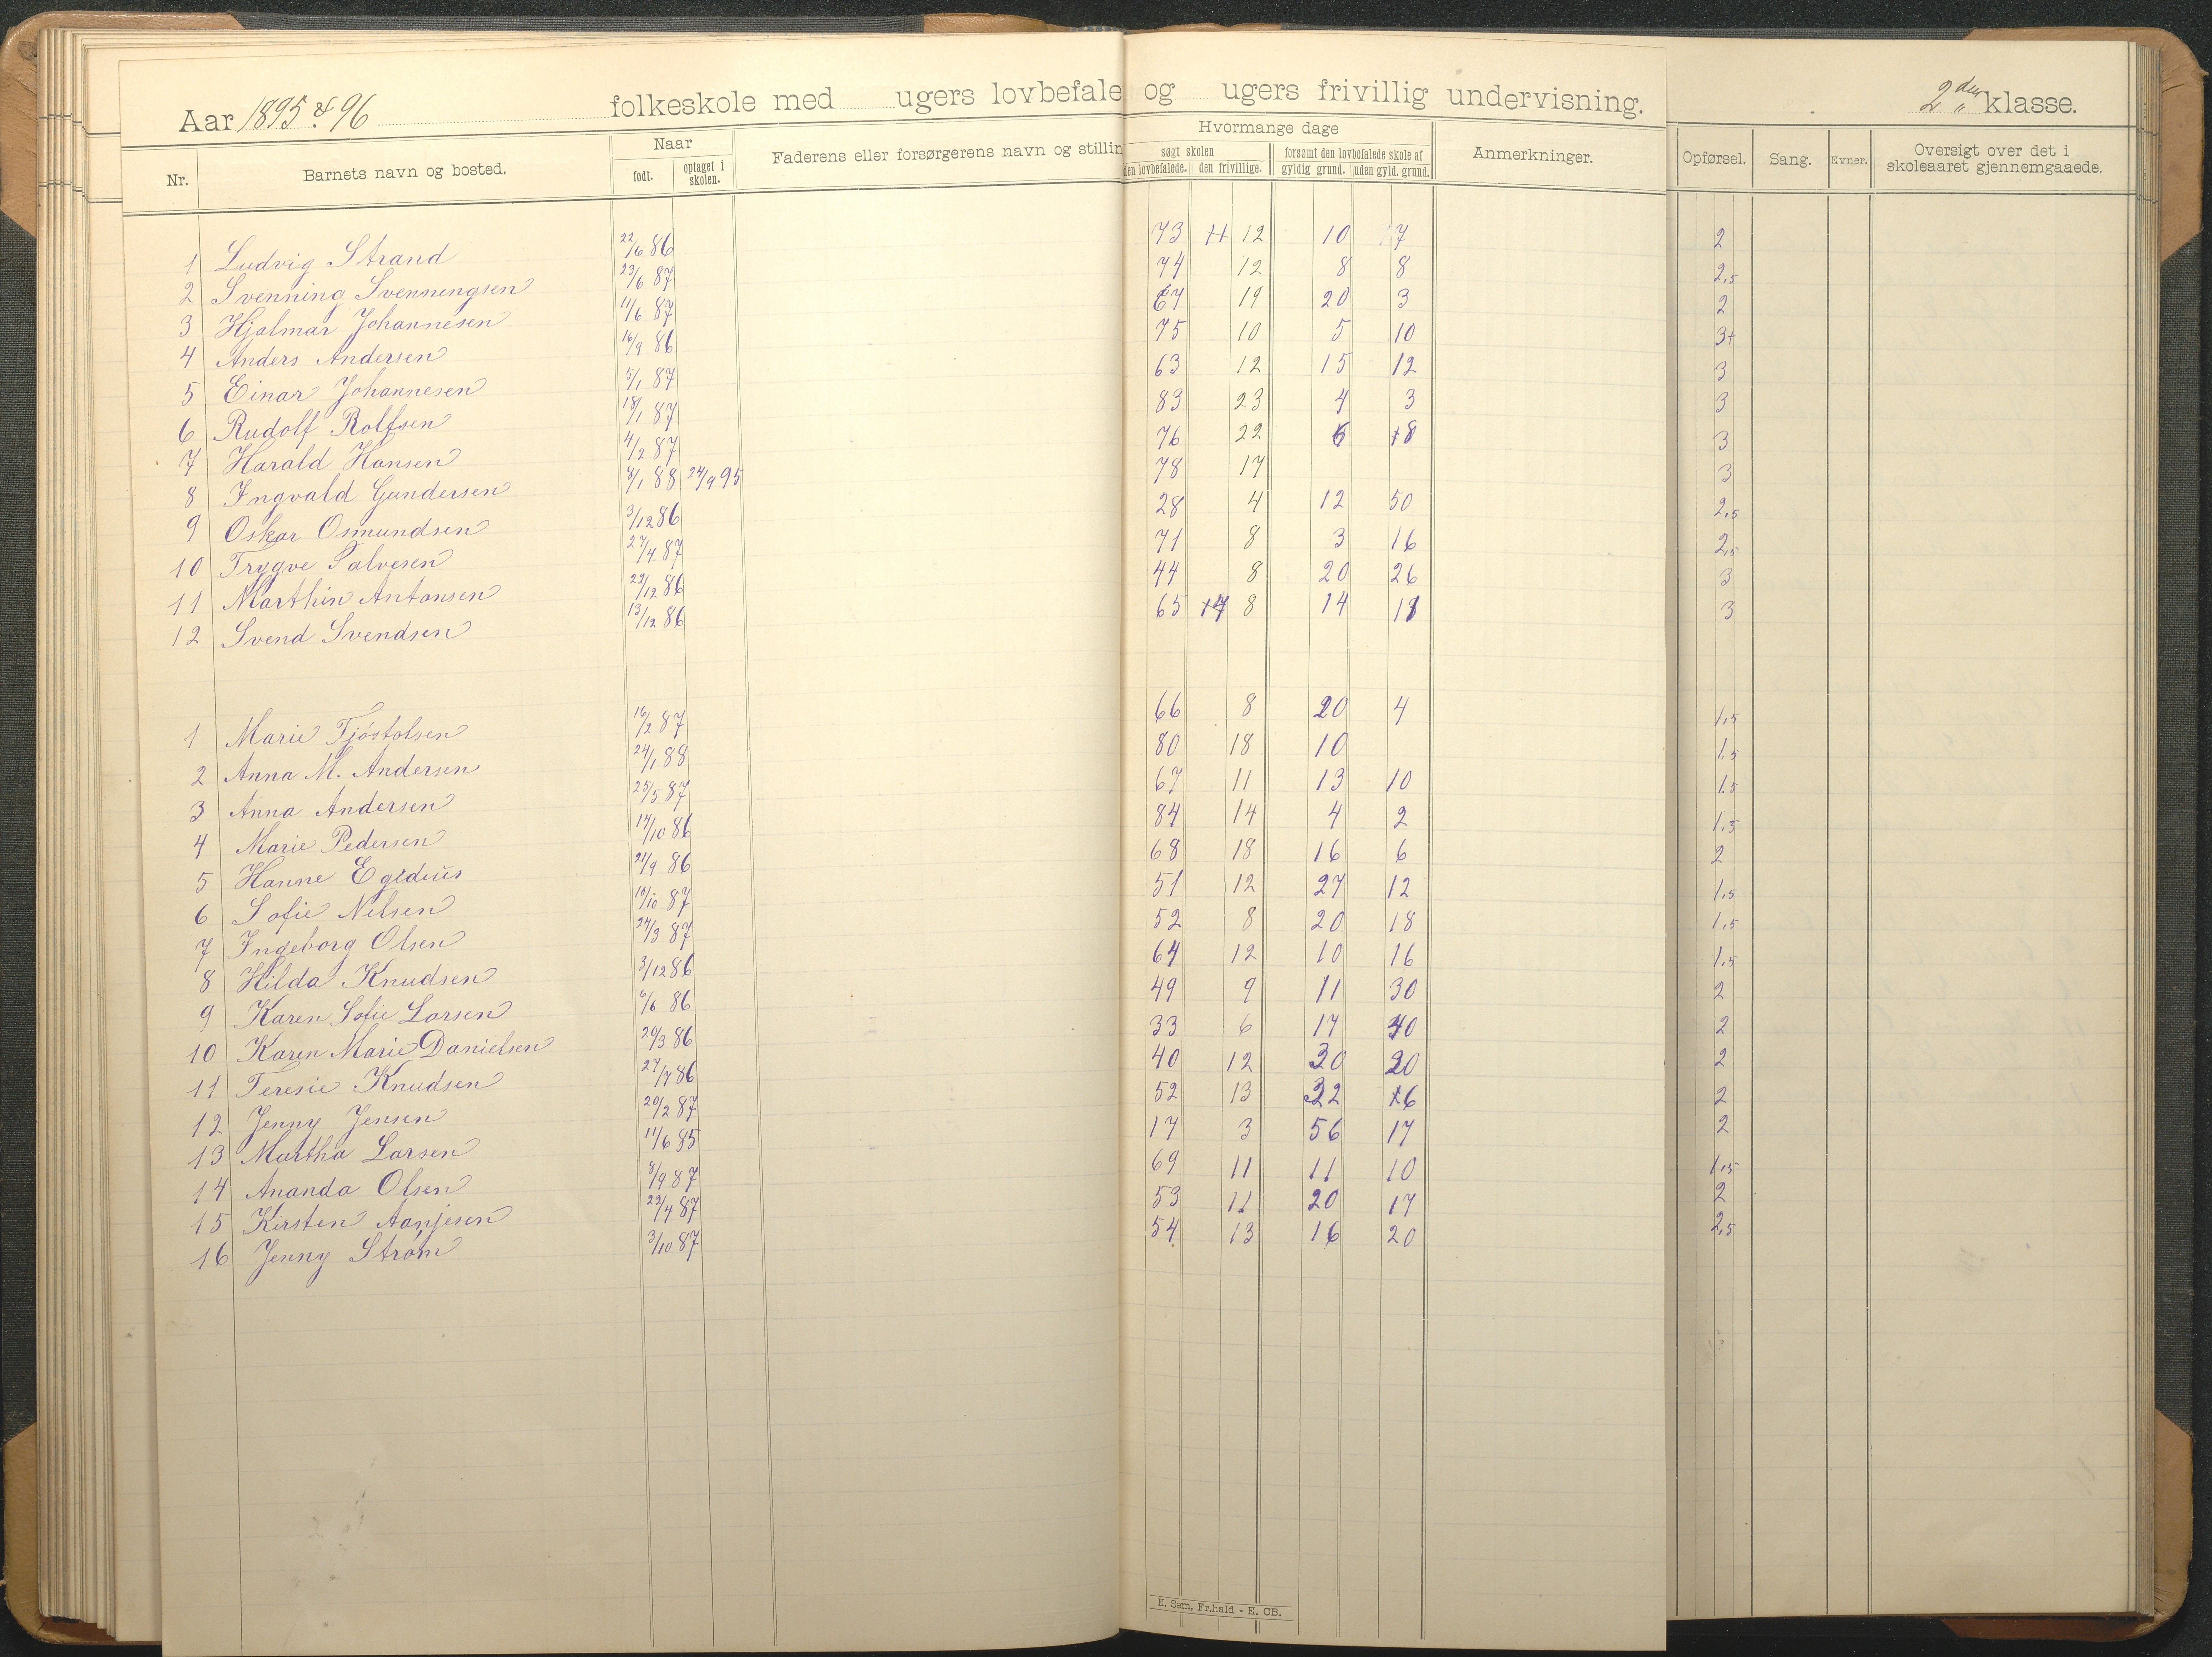 Aar 1895 & 96 folkeskole med ugers lovbefale og ugers frivillig undervisning. 2den klasse.
Nr. Barnets navn og bosted. Naar født. optaget i skolen. Faderens eller forsørgerens navn og stillin Hvormange dage søgt skolen den lovbefalede. den frivillige. forsømt den lovbefalede skole af gyldig grund. uden gyld. grund. Anmerkninger. Opførsel. Sang. Evner. Oversigt over det i skoleaaret gjennemgaaede.
1 Ludvig Strand 22/6 86 73 12 10 7 2
2 Svenning Svenningsen 23/6 87 74 12 8 8 2,5
3 Hjalmar Johannesen 11/6 87 67 19 20 3 2
4 Anders Andersen 16/9 86 75 10 5 10 3+
5 Einar Johannesen 5/1 87 63 12 15 12 3
6 Rudolf Rolfsen 18/1 87 83 23 4 3 3
7 Harald Hansen 4/2 87 76 22 6 8 3
8 Ingvald Gundersen 8/1 88 24/9 95 78 17 3
9 Oskar Osmundsen 3/12 86 28 4 12 50 2,5
10 Trygve Salvesen 27/4 87 71 8 3 16 2,5
11 Marthin Antonsen 22/12 86 44 8 20 26 3
12 Svend Svendsen 13/12 86 65 8 14 13 3
1 Marie Tjøstolsen 16/2 87 66 8 20 4 1,5
2 Anna M. Andersen 24/1 88 80 18 10 1,5
3 Anna Andersen 25/5 87 67 11 13 10 1,5
4 Marie Pedersen 14/10 86 84 14 4 2 1,5
5 Hanne Egidius 21/9 86 68 18 16 6 2
6 Sofie Nilsen 10/10 87 51 12 27 12 1,5
7 Ingeborg Olsen 24/3 87 52 8 20 18 1,5
8 Hilda Knudsen 3/12 86 64 12 10 16 1,5
9 Karen Sofie Larsen 6/6 86 49 9 11 30 2
10 Karen Marie Danielsen 20/3 86 33 6 17 40 2
11 Teresie Knudsen 27/7 86 40 12 30 20 2
12 Jenny Jensen 20/2 87 52 13 32 6 2
13 Martha Larsen 11/6 85 17 3 56 17 2
14 Ananda Olsen 8/9 87 69 11 11 10 1,5
15 Kirsten Aanjesen 22/4 87 53 11 20 17 2
16 Jenny Strøm 3/10 87 54 13 16 20 2,5
E. Sem, Fr.hald - E. CB.